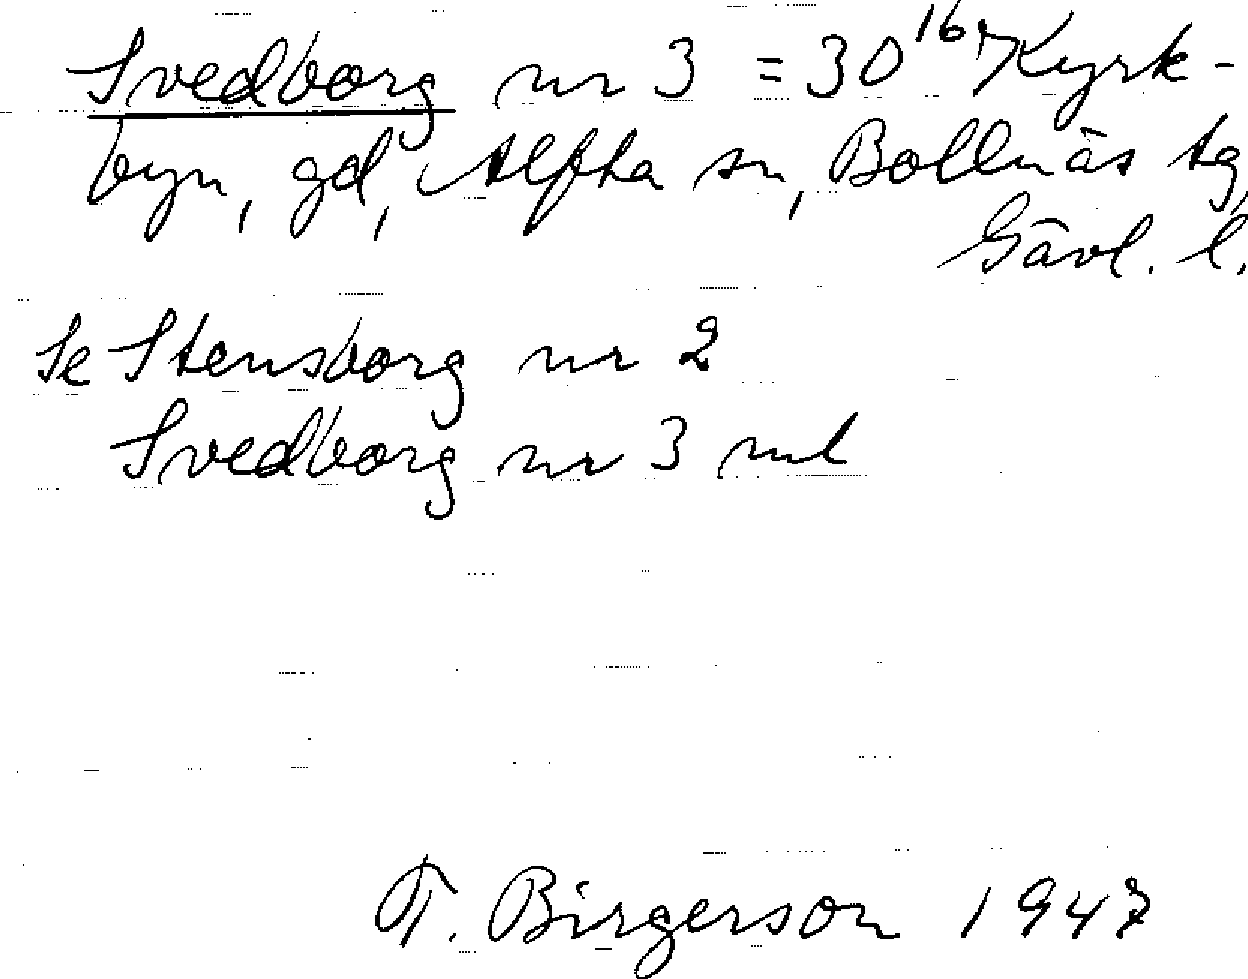 Svedborg nr 3 = 30¹⁶ Kyrk-
byn, gd, Alfta sn, Bollnäs tg,
Gävl. l.
Se Stensborg nr 2
Svedborg nr 3 ml
T. Birgerson 1947